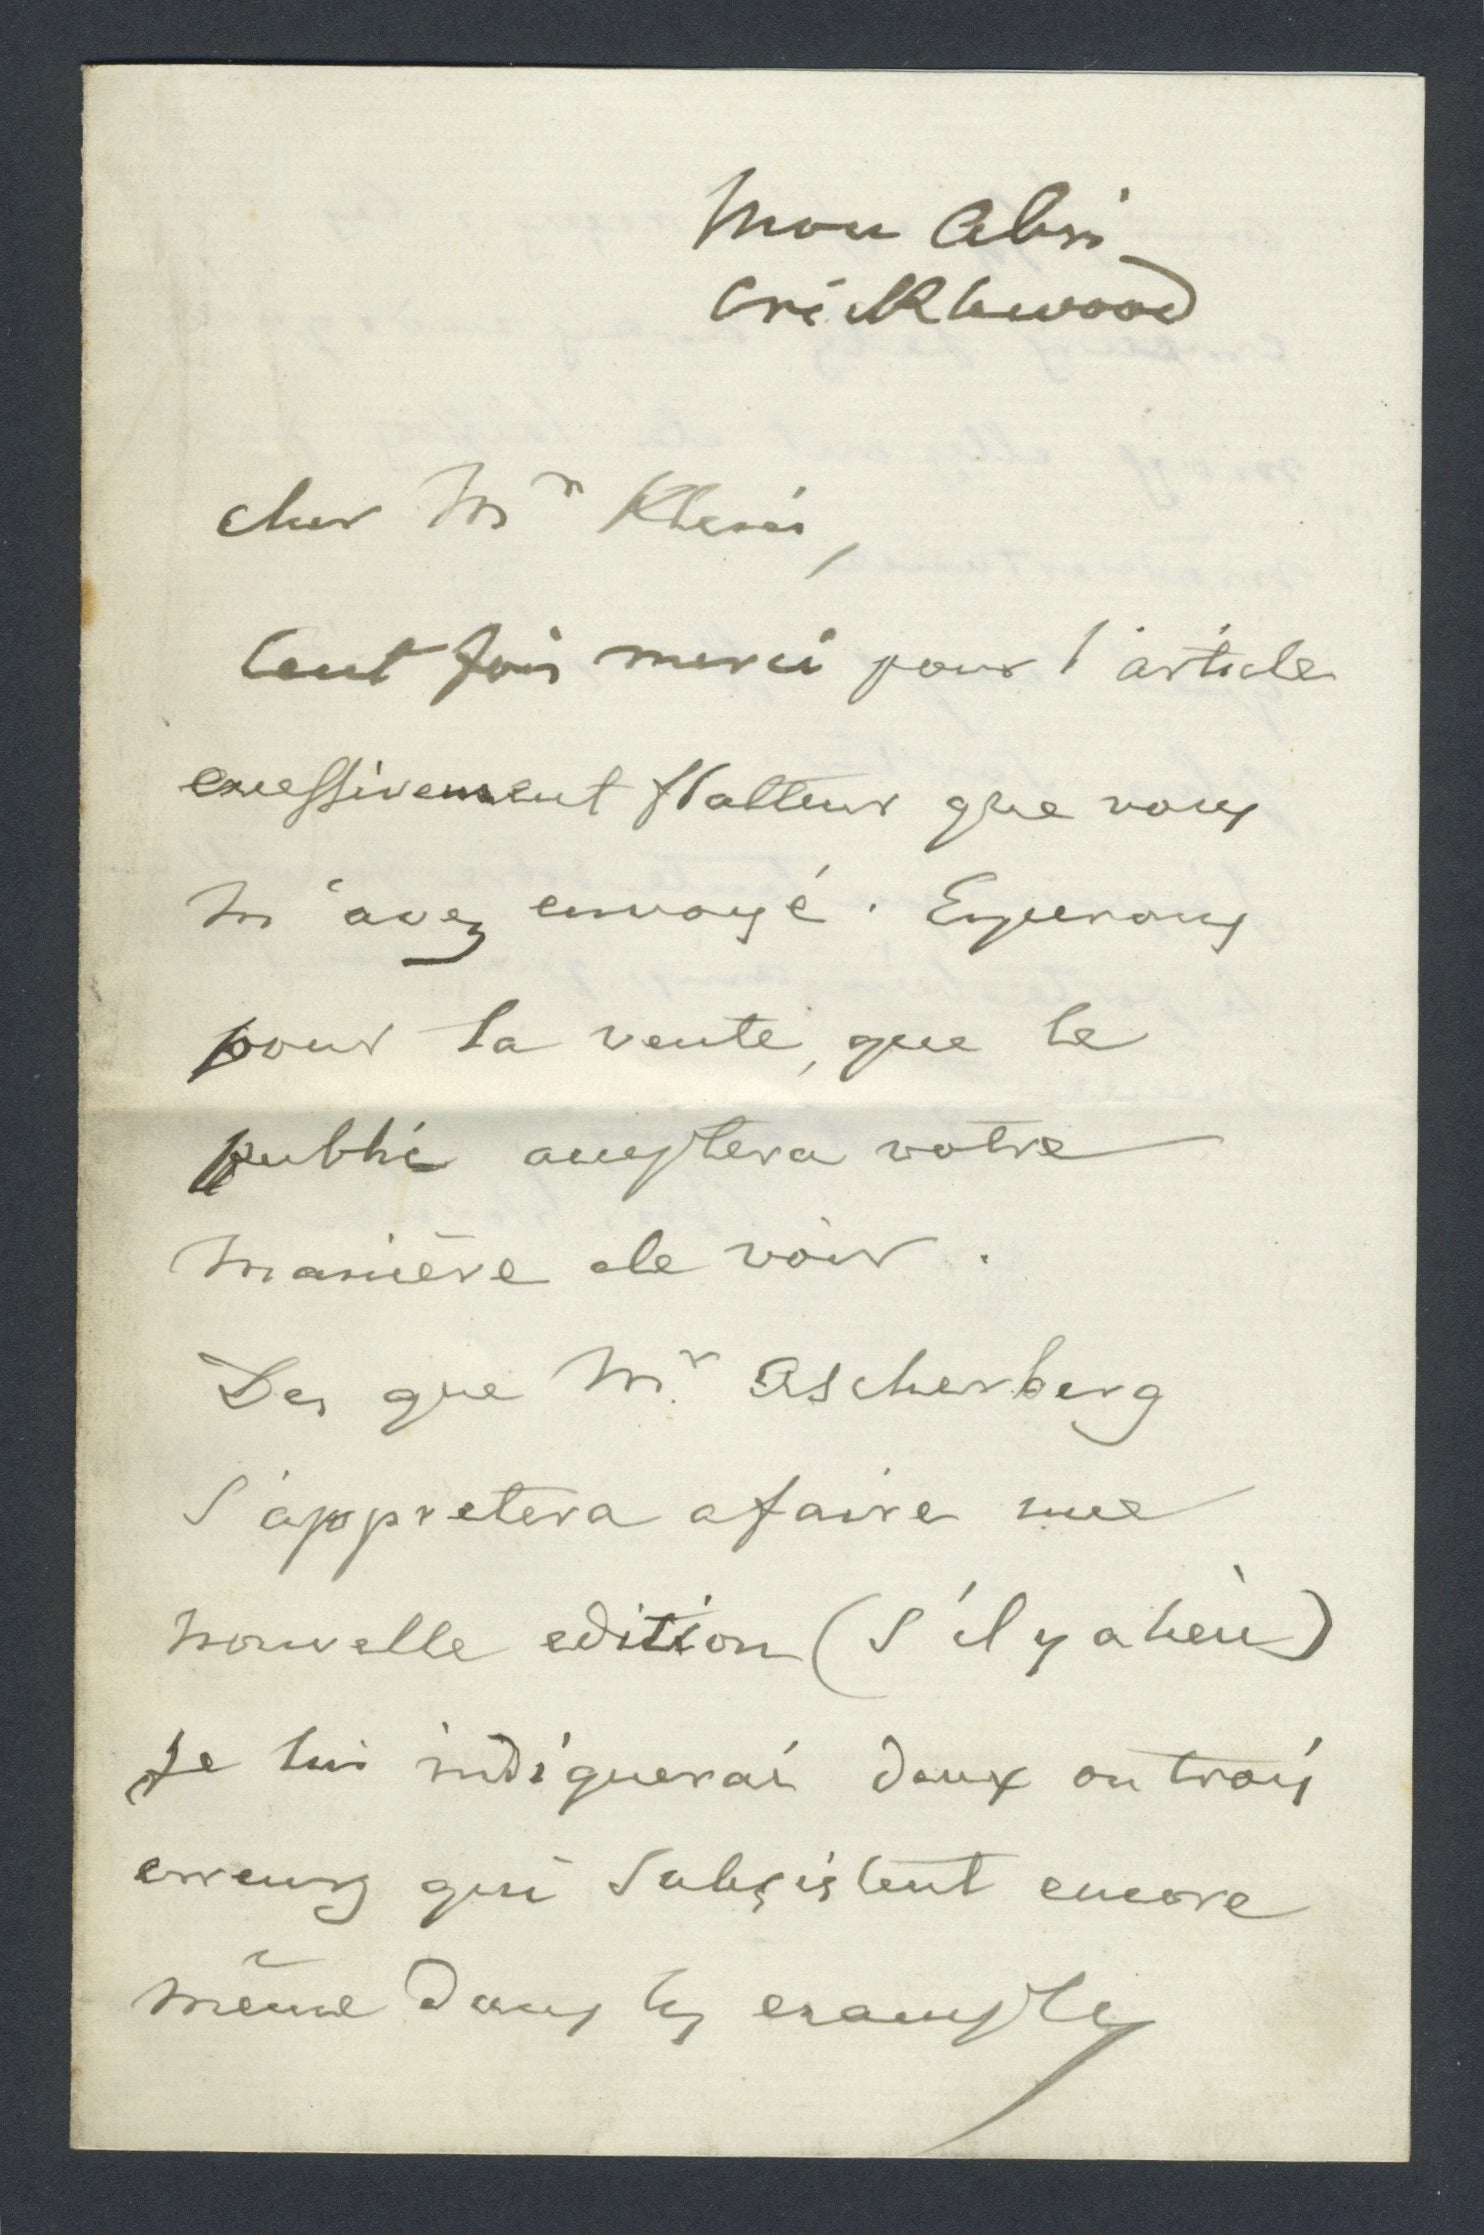 Mon Abri
Cricklewood
cher Mr Klein,
Cent fois merci pour l'article
excessivement flatteur que vous
m'avez envoyé. Esperons
pour la vente, que le
public acceptera votre
manière de voir.
Des que Mr. Ascherberg
s'appretera a faire une
nouvelle edition (s'il y a lieu)
je lui indiquerai deux ou trois
erreurs qui subsistent encore
même dans les examples